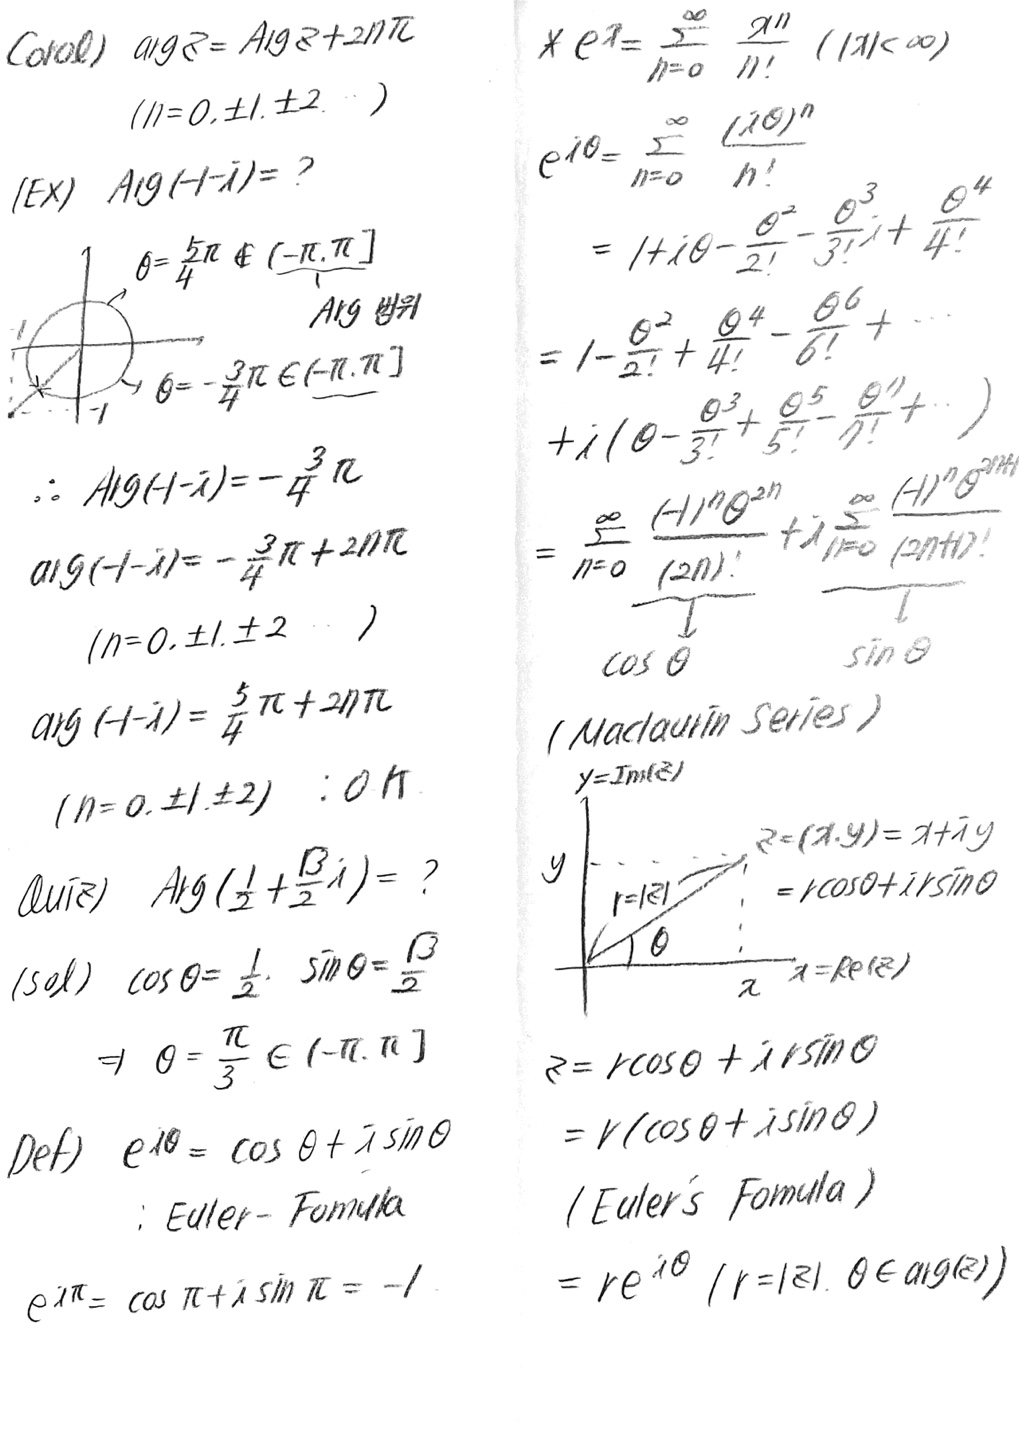 Corol) arg z = Arg z + 2nπ
(n=0. ±1. ±2. ‥ )
(EX) Arg(-1-i) = ?
θ = 5/4 π ∉ (-π. π]
Arg 범위
-1
θ = -3/4 π ∈ (-π. π]
-1
∴ Arg(-1-i) = -3/4 π
arg(-1-i) = -3/4 π + 2nπ
(n=0. ±1. ±2 ‥ )
arg(-1-i) = 5/4 π + 2nπ
(n=0. ±1. ±2) : OK.
Quiz) Arg(1/2 + √3/2 i) = ?
(sol) cos θ = 1/2. sin θ = √3/2
⇒ θ = π/3 ∈ (-π. π]
Def) e^iθ = cos θ + i sin θ
: Euler - Fomula
e^iπ = cos π + i sin π = -1.
* e^x = ∞ Σ n=0 x^n/n! (|x|<∞)
e^iθ = ∞ Σ n=0 (iθ)^n/n!
= 1 + iθ - θ^2/2! - θ^3/3! i + θ^4/4!
= 1 - θ^2/2! + θ^4/4! - θ^6/6! + ⋯
+ i ( θ - θ^3/3! + θ^5/5! - θ^7/7! + ‥ )
= ∞ Σ n=0 (-1)^n θ^2n/(2n)! + i ∞ Σ n=0 (-1)^n θ^2n+1/(2n+1)!
cos θ sin θ
(Maclaurin Series)
y=Im(z)
z=(x.y) = x+iy
y
r=|z| = rcosθ + irsinθ
θ
x x=Re(z)
z = rcosθ + i rsinθ
= r(cosθ + isinθ)
(Euler's Fomula)
= re^iθ (r=|z|. θ ∈ arg(z))